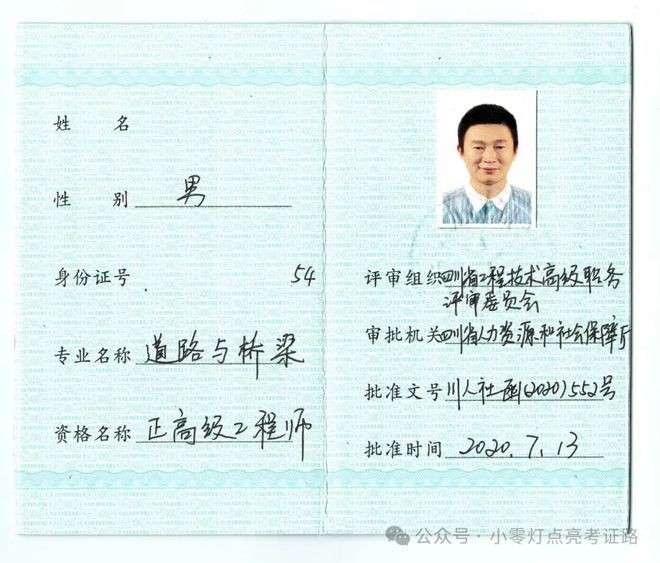 姓 名
性 别 男
身份证号 54
专业名称 道路与桥梁
资格名称 正高级工程师
评审组织 四川省工程技术高级职务
评审委员会
审批机关 四川省人力资源和社会保障厅
批准文号 川人社函(2020)552号
批准时间 2020.7.13
公众号·小零灯点亮考证路